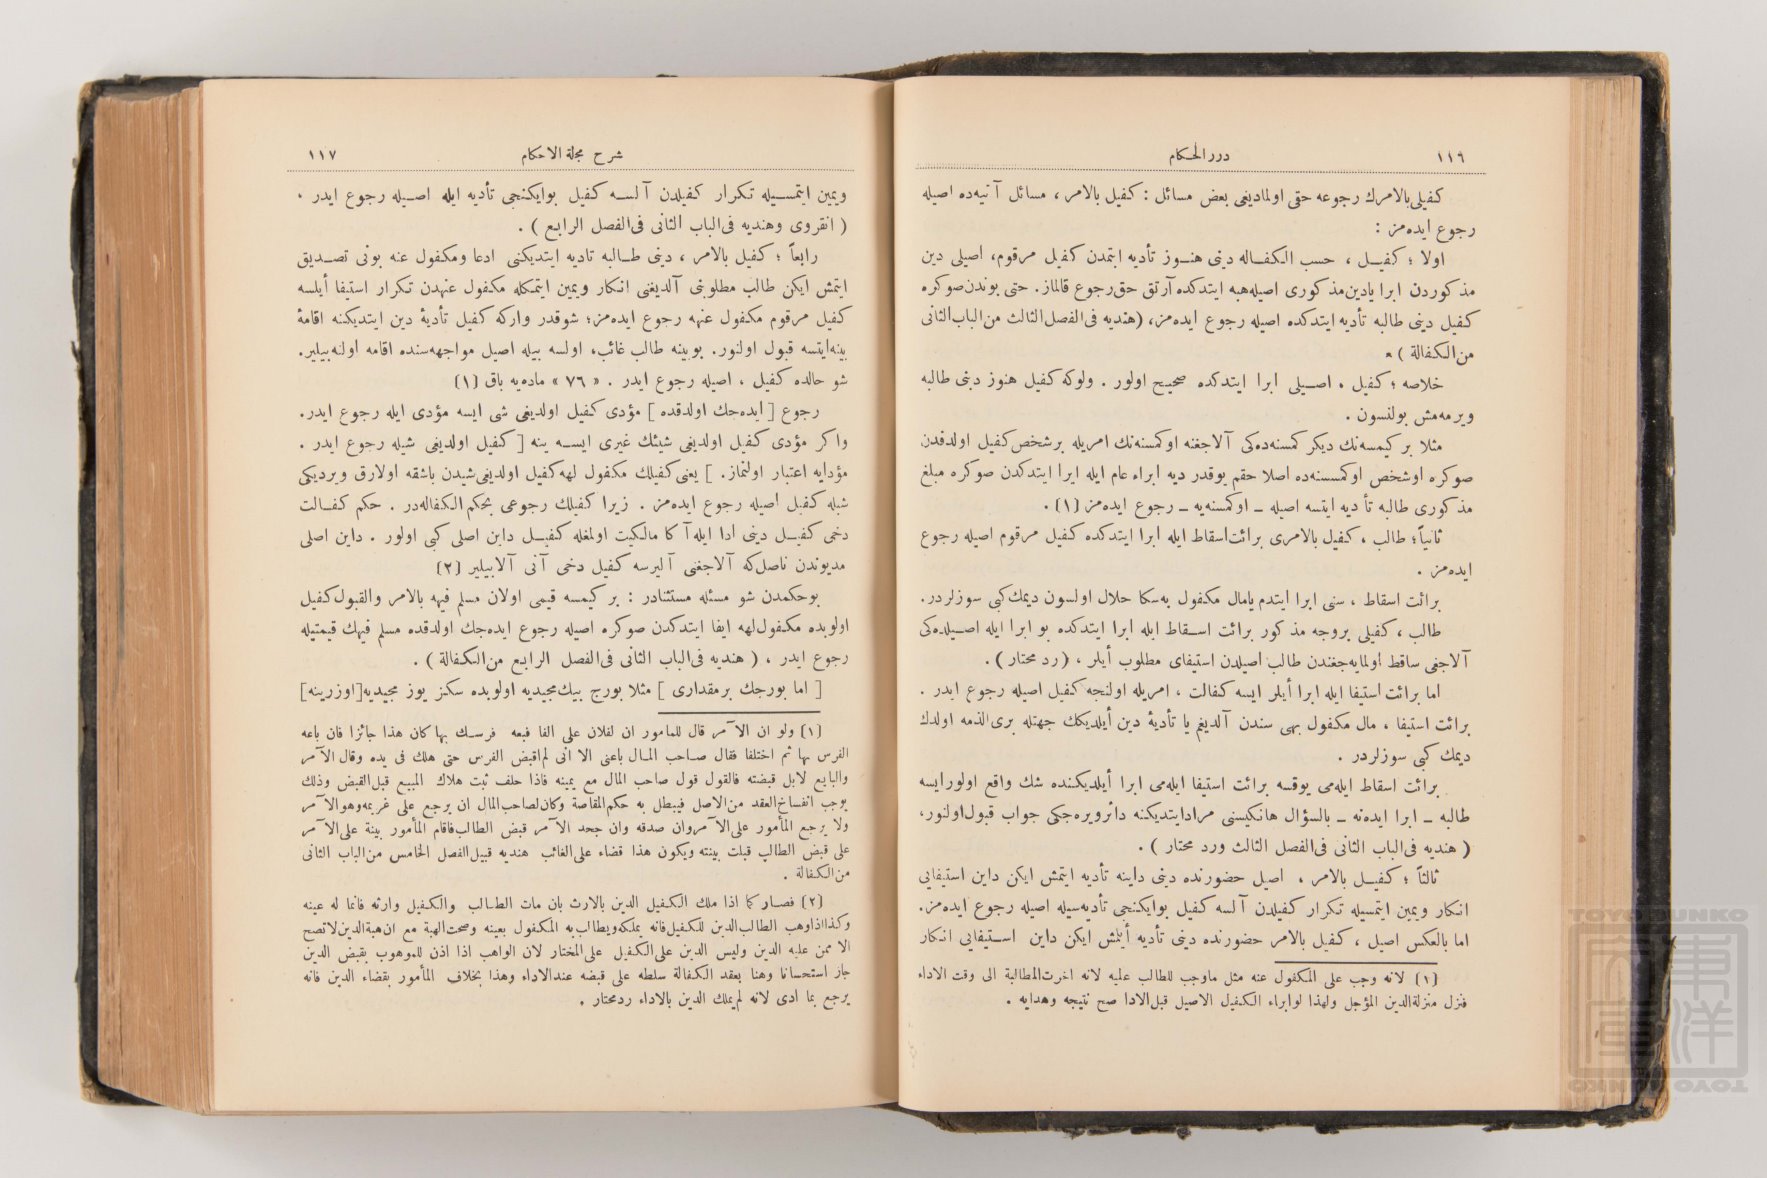 ١١٦ درر الحكام
كفيلى بالامرك رجوعه حقى اولماديغى بعض مسائل : كفيل بالامر ، مسائل آتيه‌ده اصيله
رجوع ايده‌مز :
اولا ؛ كفيل ، حسب الكفاله دينى هنوز تأديه ايتمدن كفيل مرقوم، اصيلى دين
مذكوردن ابرا يادين مذكورى اصيله هبه ايتدكده آرتق حق رجوع قالماز. حتى بوندن صوكره
كفيل دينى طالبه تأديه ايتدكده اصيله رجوع ايده‌مز، (هنديه فى الفصل الثالث من الباب الثانى
من الكفالة ) .
خلاصه ؛ كفيل ، اصيلى ابرا ايتدكده صحيح اولور . ولوكه كفيل هنوز دينى طالبه
ويرمه‌مش بولنسون .
مثلا بر كيمسه‌نك ديكر كمسنه‌ده‌كى آلاجغنه اوكمسنه‌نك امريله برشخص كفيل اولدقدن
صوكره اوشخص اوكمسنه‌ده اصلا حقم يوقدر ديه ابراء عام ايله ابرا ايتدكدن صوكره مبلغ
مذكورى طالبه تأديه ايتسه اصيله ــ اوكمسنه‌يه ــ رجوع ايده‌مز (١) .
ثانياً ؛ طالب ، كفيل بالامرى برائت اسقاط ايله ابرا ايتدكده كفيل مرقوم اصيله رجوع
ايده‌مز .
برائت اسقاط ، سنى ابرا ايتدم يامال مكفول به سكا حلال اولسون ديمك كبى سوزلردر.
طالب ، كفيلى بروجه مذكور برائت اسقاط ايله ابرا ايتدكده بو ابرا ايله اصيلده‌كى
آلاجغى ساقط اولمايه‌جغندن طالب اصيلدن استيفاى مطلوب أيلر ، (رد محتار) .
اما برائت استيفا ايله ابرا أيلر ايسه كفالت ، امريله اولنجه كفيل اصيله رجوع ايدر .
برائت استيفا ، مال مكفول بهى سندن آلديغم يا تأديهٔ دين أيلديكك جهتله برى الذمه اولدك
ديمك كبى سوزلردر .
برائت اسقاط ايله‌مى يوقسه برائت استيفا ايله‌مى ابرا أيلديكنده شك واقع اولورايسه
طالبه ــ ابرا ايدنه ــ بالسؤال هانكيسنى مرادايتديكنه دائرويره‌جكى جواب قبول اولنور،
( هنديه فى الباب الثانى فى الفصل الثالث ورد محتار ) .
ثالثاً ؛ كفيل بالامر ، اصيل حضورنده دينى داينه تأديه ايتمش ايكن داين استيفايى
انكار ويمين ايتمسيله تكرار كفيلدن آلسه كفيل بوايكنجى تأديه‌سيله اصيله رجوع ايده‌مز.
اما بالعكس اصيل ، كفيل بالامر حضورنده دينى تأديه أيلمش ايكن داين استيفايى انكار
(١) لانه وجب على المكفول عنه مثل ماوجب للطالب عليه لانه اخرت المطالبة الى وقت الاداء
فنزل منزلة الدين المؤجل ولهذا لوابراء الكفيل الاصيل قبل الادا صح نتيجه وهدايه .
شرح مجلة الاحكام ١١٧
ويمين ايتمسيله تكرار كفيلدن آلسه كفيل بوايكنجى تأديه ايله اصيله رجوع ايدر .
( انقروى وهنديه فى الباب الثانى فى الفصل الرابع ) .
رابعاً ؛ كفيل بالامر ، دينى طالبه تاديه ايتديكنى ادعا ومكفول عنه بونى تصديق
ايتمش ايكن طالب مطلوبنى آلديغنى انكار ويمين ايتمكله مكفول عنهدن تكرار استيفا أيلسه
كفيل مرقوم مكفول عنهه رجوع ايده‌مز؛ شوقدر واركه كفيل تأديهٔ دين ايتديكنه اقامهٔ
بينه ايتسه قبول اولنور. بوبينه طالب غائب، اولسه بيله اصيل مواجهه‌سنده اقامه اولنه‌بيلير.
شو حالده كفيل ، اصيله رجوع ايدر . « ٧٦ » ماده‌يه باق (١)
رجوع [ ايده‌جك اولدقده ] مؤدى كفيل اولديغى شى ايسه مؤدى ايله رجوع ايدر.
واكر مؤدى كفيل اولديغى شيئك غيرى ايسه ينه [ كفيل اولديغى شيله رجوع ايدر .
مؤدايه اعتبار اولنماز. ] يعنى كفيلك مكفول لهه كفيل اولديغى شيدن باشقه اولارق ويرديكى
شيله كفيل اصيله رجوع ايده‌مز . زيرا كفيلك رجوعى بحكم الكفاله‌در . حكم كفالت
دخى كفيل دينى ادا ايله آكا مالكيت اولمغله كفيل داين اصلى كبى اولور . داين اصلى
مديوندن ناصل كه آلاجغنى آليرسه كفيل دخى آنى آلابيلير (٢)
بوحكمدن شو مسئله مستثنادر : بر كيمسه قيمى اولان مسلم فيهه بالامر والقبول كفيل
اولوبده مكفول لهه ايفا ايتدكدن صوكره اصيله رجوع ايده‌جك اولدقده مسلم فيهك قيمتيله
رجوع ايدر ، ( هنديه فى الباب الثانى فى الفصل الرابع من الكفالة ) .
[ اما بورجك برمقدارى ] مثلا بورج بيك مجيديه اولوبده سكز يوز مجيديه [اوزرينه]
(١) ولو ان الآمر قال للمامور ان لفلان على الفا فبعه فرسك بها كان هذا جائزا فان باعه
الفرس بها ثم اختلفا فقال صاحب المال باعنى الا انى لم اقبض الفرس حتى هلك فى يده وقال الآمر
والبايع لابل قبضته فالقول قول صاحب المال مع يمينه فاذا حلف ثبت هلاك المبيع قبل القبض وذلك
يوجب انفساخ العقد من الاصل فيبطل به حكم المقاصة وكان لصاحب المال ان يرجع على غريمه وهو الآمر
ولا يرجع المأمور على الآمر وان صدقه وان جحد الآمر قبض الطالب فاقام المأمور بينة على الآمر
على قبض الطالب قبلت بينته ويكون هذا قضاء على الغائب هنديه قبيل الفصل الخامس من الباب الثانى
من الكفالة .
(٢) فصار كما اذا ملك الكفيل الدين بالارث بان مات الطالب والكفيل وارثه فانما له عينه
وكذا اذا وهب الطالب الدين للكفيل فانه يملكه ويطالب به المكفول بعينه وصحت الهبة مع ان هبة الدين لاتصح
الا ممن عليه الدين وليس الدين على الكفيل على المختار لان الواهب اذا اذن للموهوب بقبض الدين
جاز استحسانا وهنا بعقد الكفالة سلطه على قبضه عند الاداء وهذا بخلاف المأمور بقضاء الدين فانه
يرجع بما ادى لانه لم يملك الدين بالاداء ردمحتار .
TOYO BUNKO
東洋
文庫
TOYO BUNKO